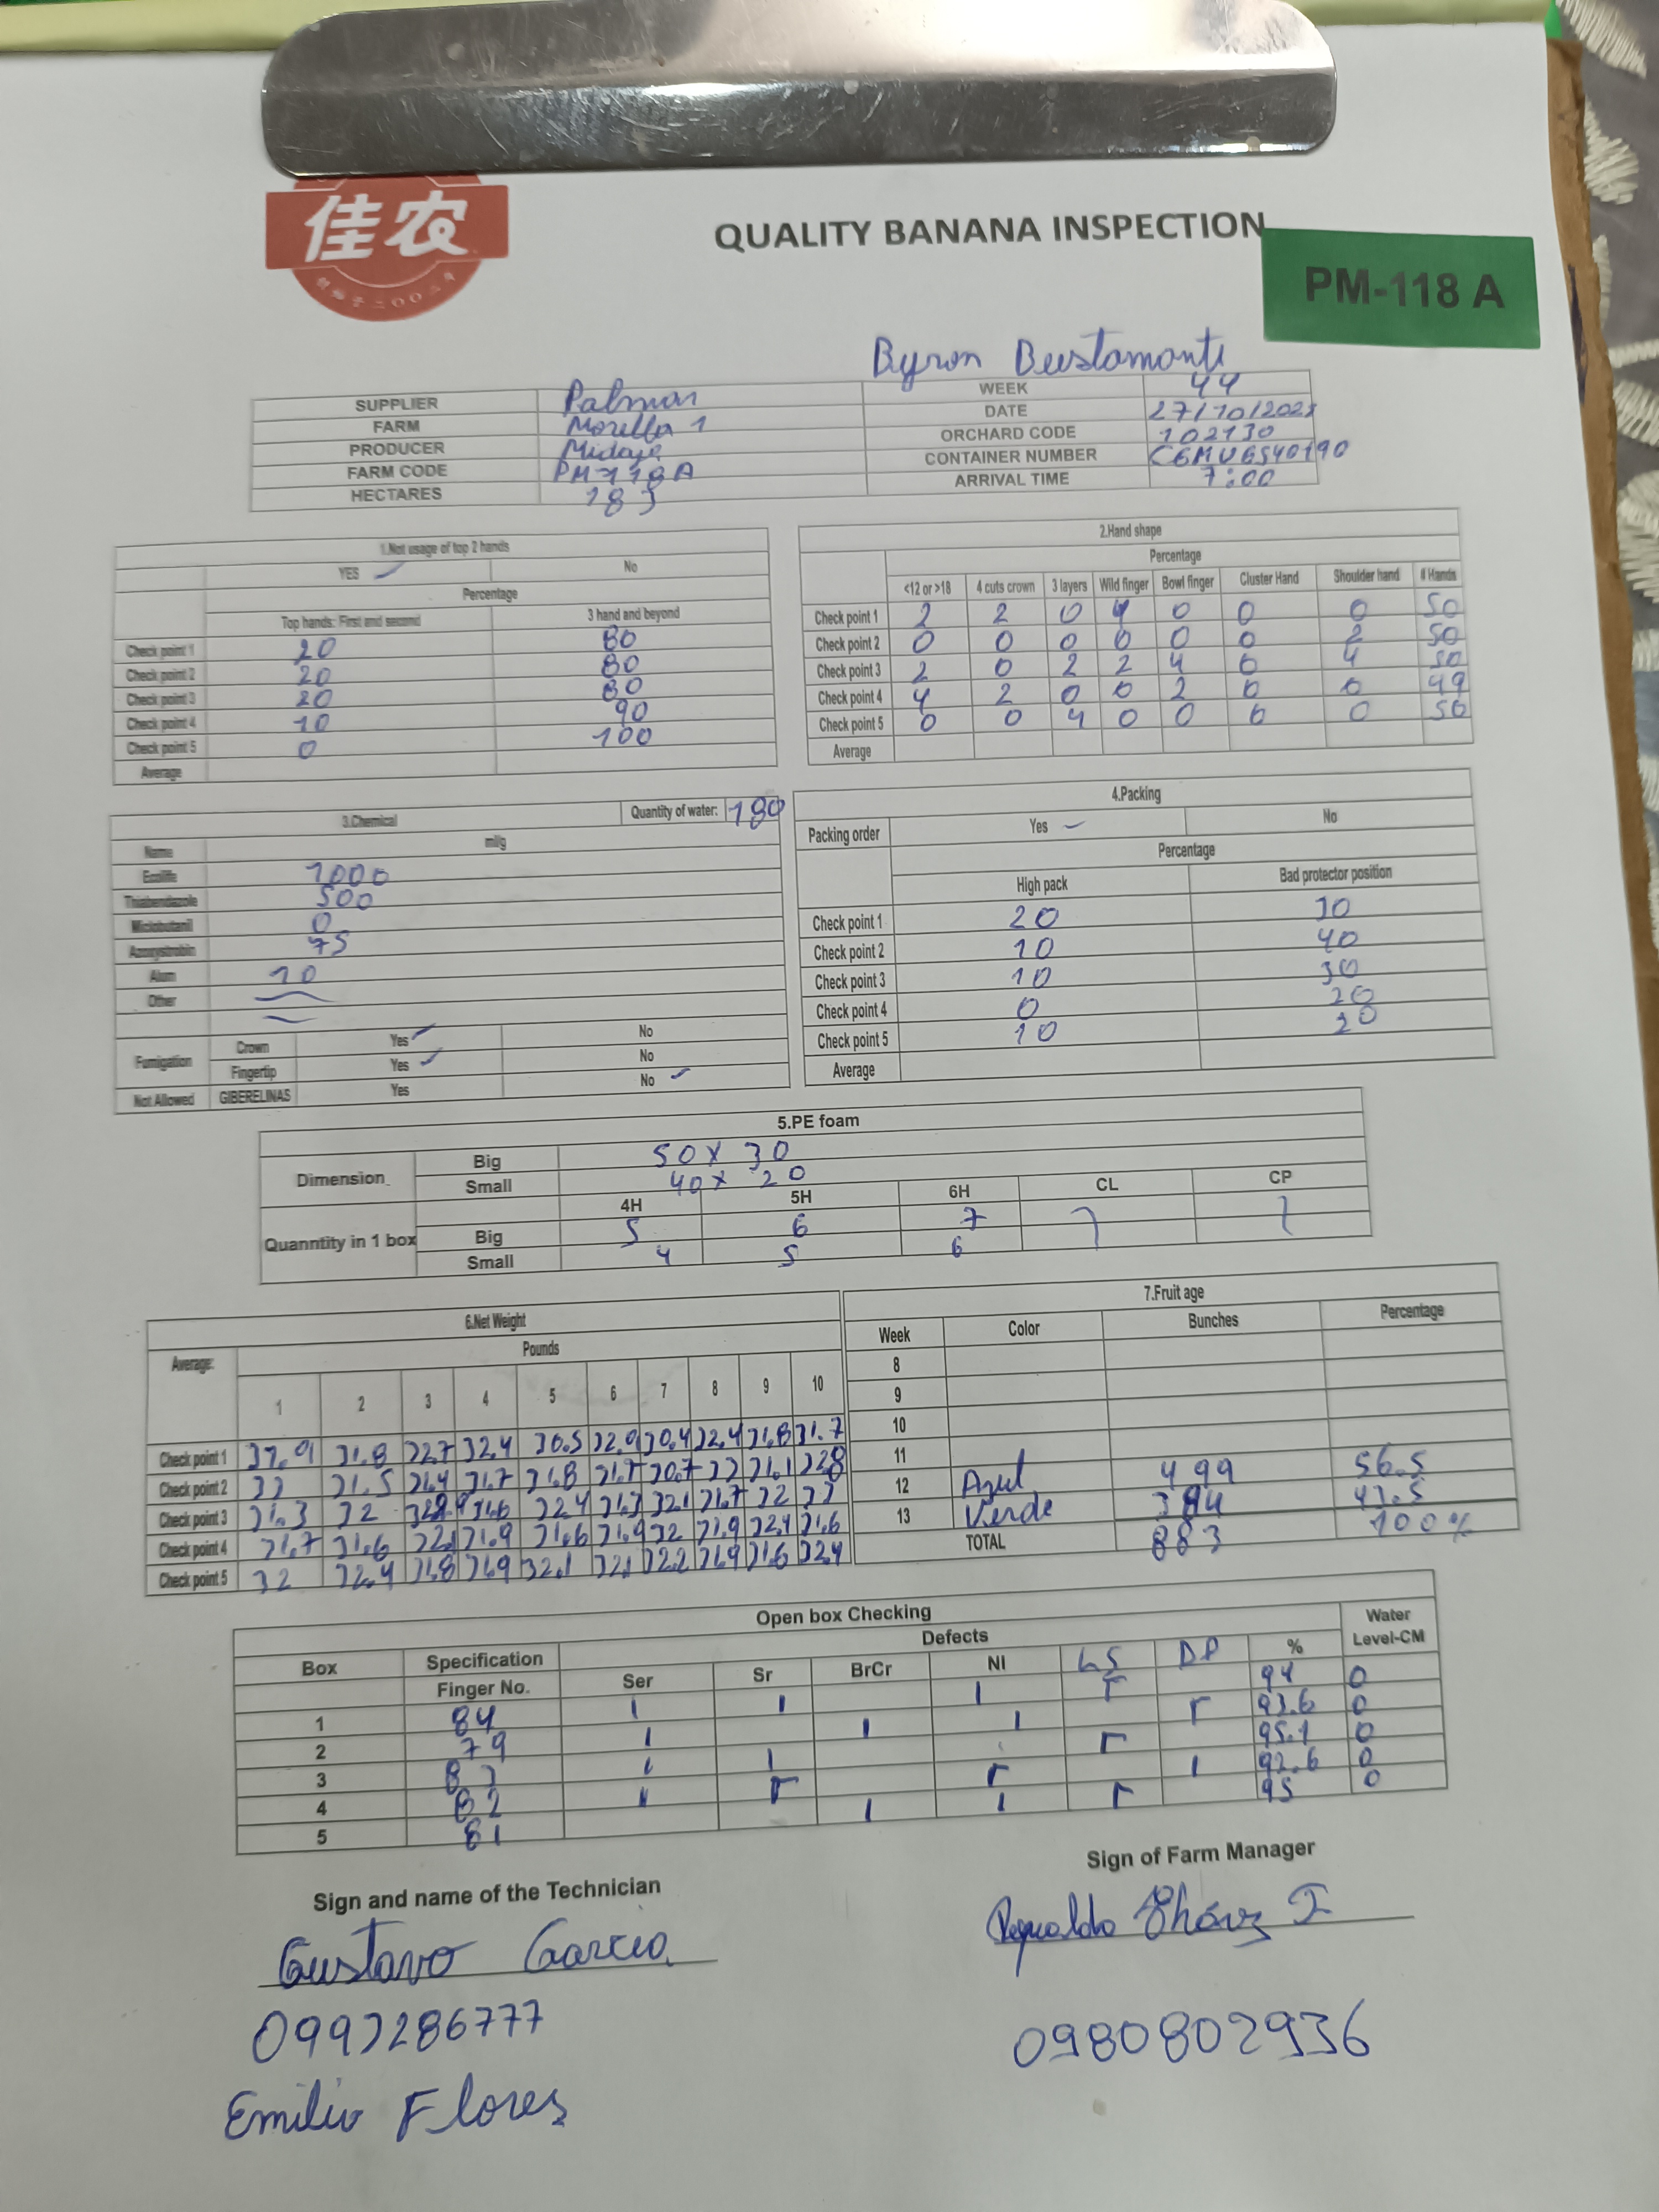 佳农
QUALITY BANANA INSPECTION
PM-118 A
Byron Bustamante
SUPPLIER Palmar WEEK 44
FARM Morella 1 DATE 27/10/202
PRODUCER ORCHARD CODE 102130
FARM CODE PM118A CONTAINER NUMBER
HECTARES 183 ARRIVAL TIME 7:00
1.Not usage of top 2 hands
YES ✓ No
Percentage
Top hands: First and second 3 hand and beyond
Check point 1 20 80
Check point 2 20 80
Check point 3 20 80
Check point 4 10 90
Check point 5 0 100
Average
2.Hand shape
Percentage
<12 or >18 4 cuts crown 3 layers Wild finger Bowl finger Cluster Hand Shoulder hand # Hands
Check point 1 2 2 0 4 0 0 0 50
Check point 2 0 0 0 0 0 0 2 50
Check point 3 2 0 2 2 4 0 4 50
Check point 4 4 2 0 0 2 0 0 49
Check point 5 0 0 4 0 0 0 0 50
Average
3.Chemical Quantity of water: 180
Name ml/g
Ecolife 1000
Thiabendazole 500
Miclobutanil 0
Azoxystrobin 75
Alum 10
Other
Fumigation Crown Yes ✓ No
Fingertip Yes ✓ No
Not Allowed GIBERELINAS Yes No ✓
4.Packing
Packing order Yes ✓ No
Percentage
High pack Bad protector position
Check point 1 20 30
Check point 2 10 40
Check point 3 10 30
Check point 4 0 20
Check point 5 10 20
Average
5.PE foam
Dimension Big 50 x 30
Small 40 x 20
4H 5H 6H CL CP
Quanntity in 1 box Big 5 6 7
Small 4 5 6
6.Net Weight
Average: Pounds
1 2 3 4 5 6 7 8 9 10
Check point 1 31.8 32.7 32.4 30.5 32.9 30.4 32.4 31.8 31.7
Check point 2 33 31.5 31.4 31.7 31.8 31.7 30.7 33 31.1 32.8
Check point 3 31.3 32 31.6 32.4 31.3 32.1 31.7 32 33
Check point 4 31.7 31.6 32.1 31.9 31.6 31.9 32 31.9 32.4 31.6
Check point 5 32 32.4 31.8 31.9 32.1 32.1 32.2 31.9 31.6 32.4
7.Fruit age
Week Color Bunches Percentage
8
9
10
11
12 Azul 499 56.5
13 Verde 384 43.5
TOTAL 883 100%
Open box Checking
Box Specification Defects Water
Finger No. Ser Sr BrCr NI LS DP % Level-CM
1 84 94 0
2 79 93.6 0
3 83 95.1 0
4 82 92.6 0
5 81 95 0
Sign and name of the Technician
Gustavo Garcia
0993286777
Emilio Flores
Sign of Farm Manager
0980802936